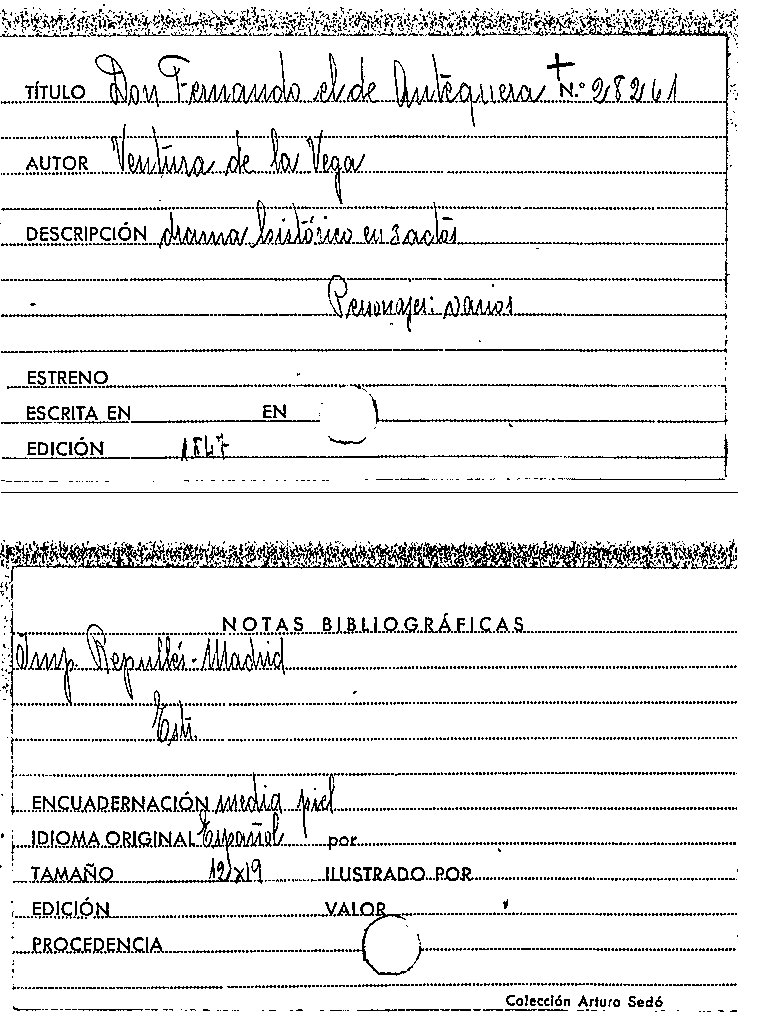 TÍTULO Don Fernando el de Antequera + N.º 28261
AUTOR Ventura de la Vega
DESCRIPCIÓN drama histórico en 3 actos
Personajes: varios
ESTRENO
ESCRITA EN EN
EDICIÓN 1847
NOTAS BIBLIOGRÁFICAS
Imp. Repullés-Madrid
ENCUADERNACIÓN media piel
IDIOMA ORIGINAL Español por
TAMAÑO 12x19 ILUSTRADO POR
EDICIÓN VALOR
PROCEDENCIA
Colección Arturo Sedó